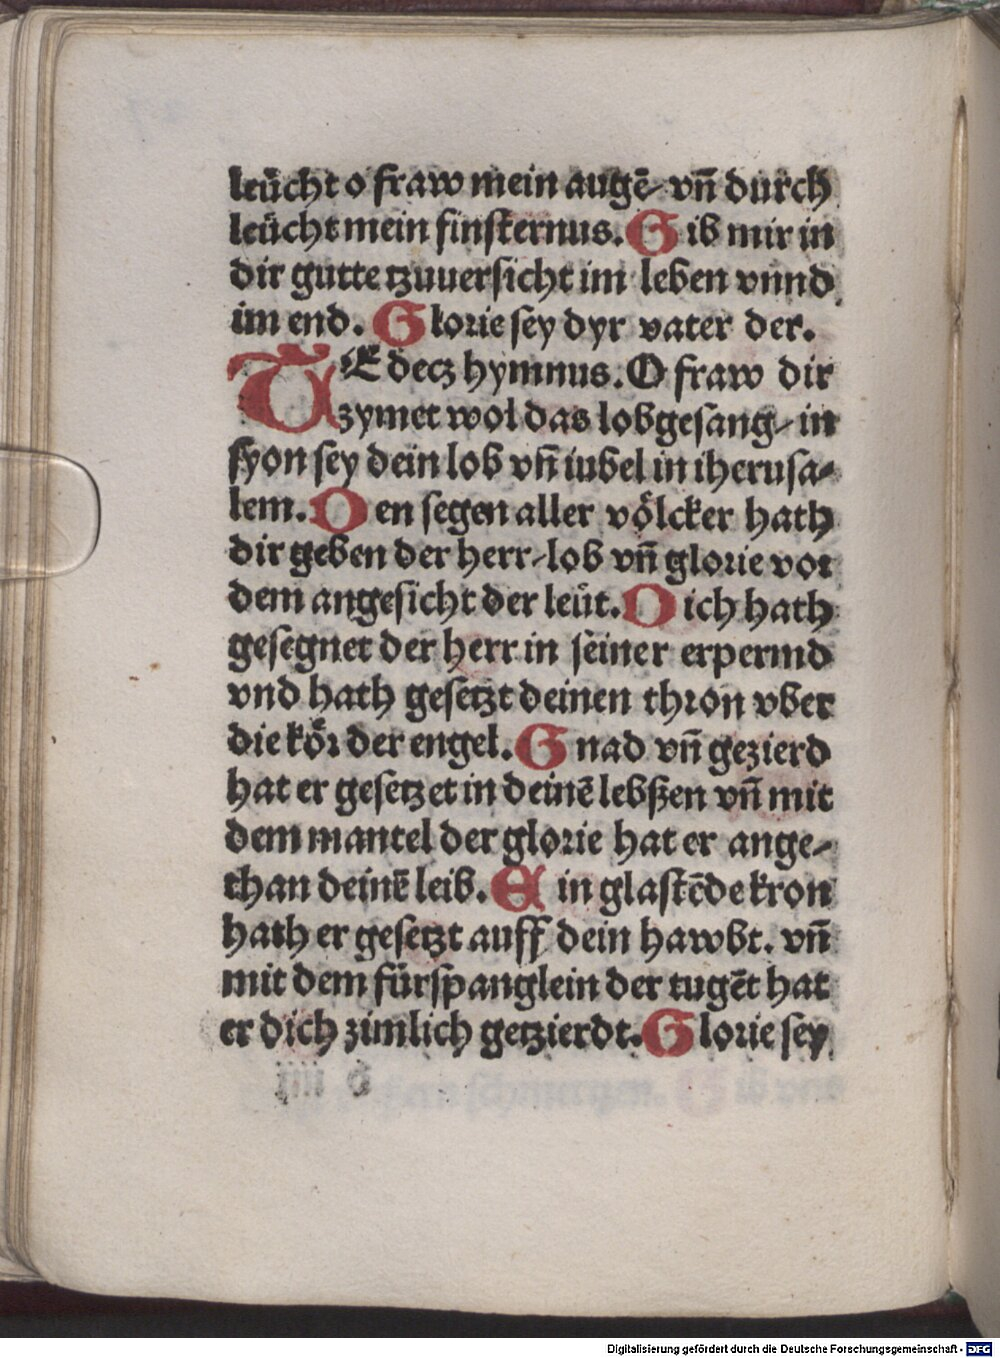 leücht o fraw mein augē / vn̄ durch
leücht mein finsternus. Gib mir in
dir gutte tzuuersicht im leben vnnd
im end. Glorie sey dyr vater der.
TE decz hymnus. O fraw dir
zymet wol das lobgesang / in
syon sey dein lob vn̄ iubel in iherusa-
lem. Den segen aller völcker hath
dir geben der herr / lob vn̄ glorie vor
dem angesicht der leüt. Dich hath
gesegnet der herr in seiner erpermd
vnd hath gesetzt deinen thron vber
die kör der engel. Gnad vn̄ gezierd
hat er gesetzet in deinē lebßen vn̄ mit
dem mantel der glorie hat er ange-
than deinē leib. Ein glastēde kron
hath er gesetzt auff dein hawbt. vn̄
mit dem fürspanglein der tugēt hat
er dich zimlich getzierdt. Glorie sey
Digitalisierung gefördert durch die Deutsche Forschungsgemeinschaft - DFG